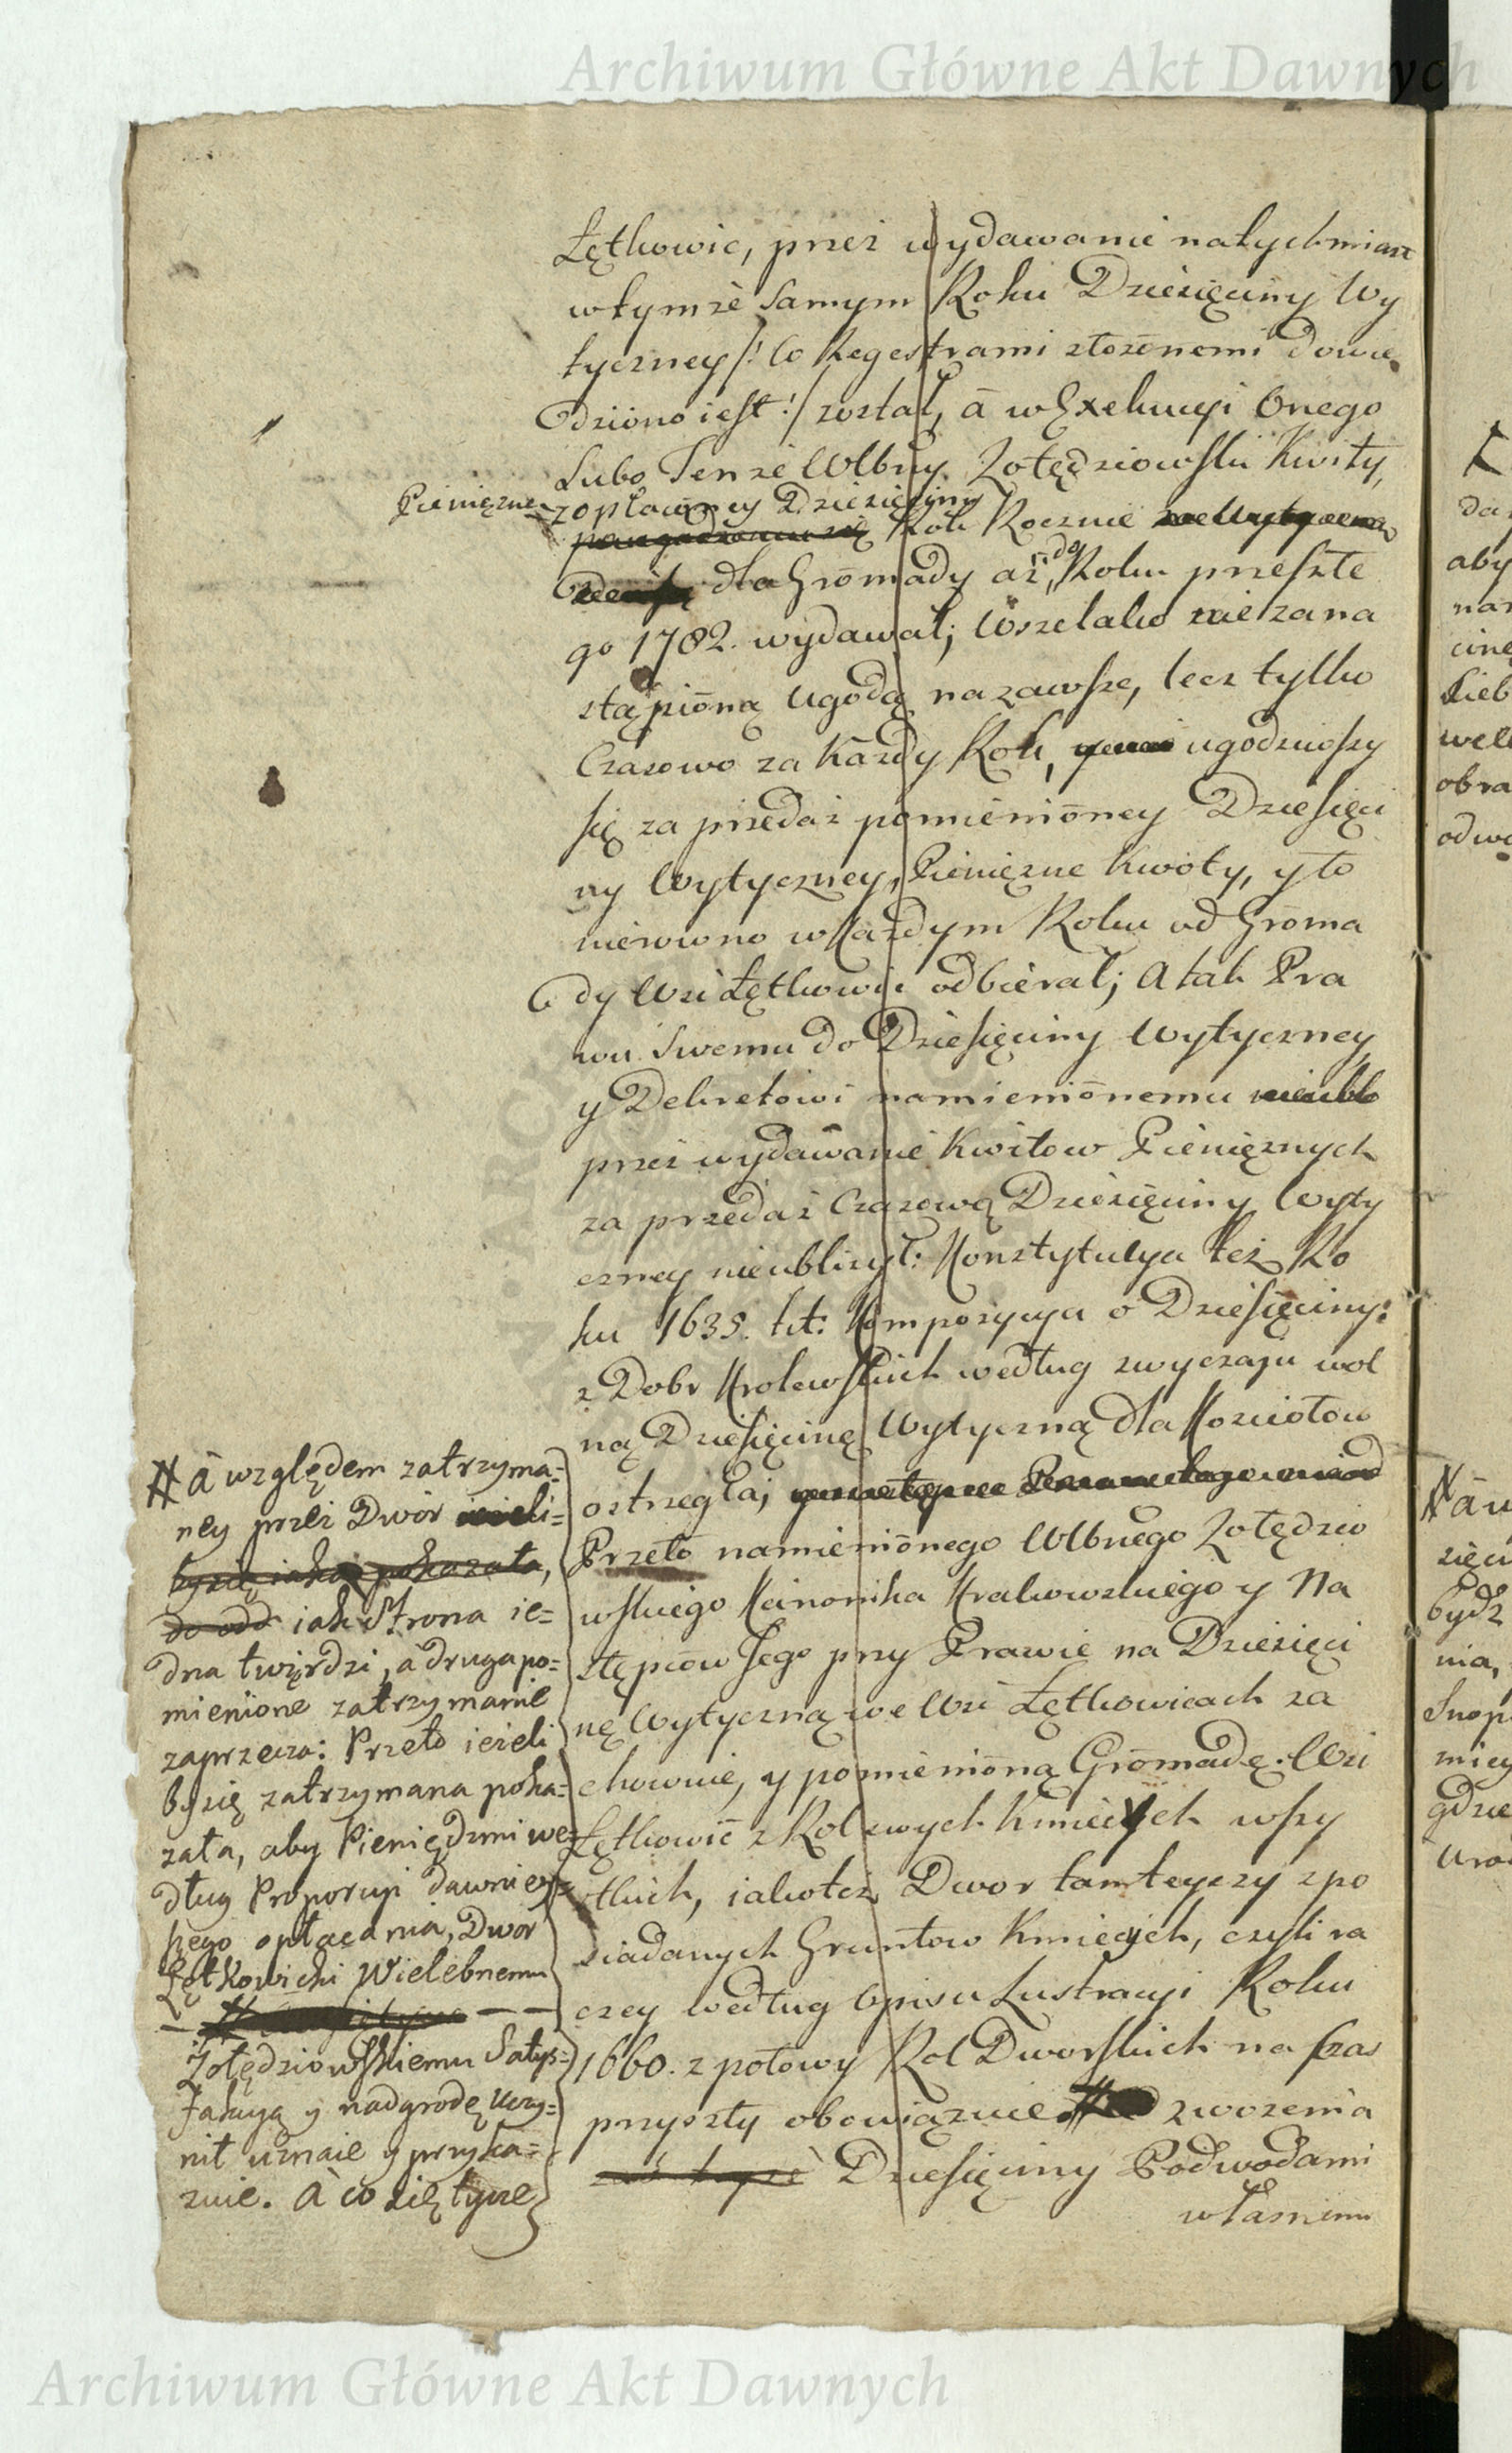 Archiwum Główne Akt Dawnych
Łętkowic, przez wydawanie natychmiast
wtymże samym Roku Dziesięciny Wy
tyczney /: Co Regestrami złożonemi dowie
dziono iest :/ został, à w Exekucyi Onego
Lubo Tenże Wlbny Żołędziowski Kwity
Pieniężne z opłaconey Dziesięciny
Rok Rocznie
dla Gromady aż do Roku przeszłe
go 1782. wydawał; Wszelako nie za na
stąpioną Ugodą na zawsze, lecz tylko
Czasowo za każdy Rok, ugodziwszy
się za przedaż pomienioney Dziesięci
ny Wytyczney, Pieniężne kwoty, y to
nierowno w każdym Roku od Groma
dy Wsi Łętkowic odbierał; A tak Pra
wu swemu do Dziesięciny Wytyczney
y Dekretowi namienionemu
przez wydawanie Kwitow Pieniężnych
za przedaż Czasową Dziesięciny Wyty
czney nieubliżył: Konstytucya też Ro
ku 1635. tit: Kompozycya o Dziesięciny:
z Dobr Krolewskich według zwyczaju wol
ną Dziesięcinę Wytyczną dla Kosciołow
ostrzegła;
Przeto namienionego Wlbnego Żołędzio
wskiego Kanonika Krakowskiego y Na
stępcow Jego przy Prawie na Dziesięci
nę Wytyczną we Wsi Łętkowicach za
chowuie, y pomienioną Gromadę Wsi
Łętkowic z Rol swych Kmiecych wszy
stkich, iakoteż Dwor tamteyszy z po
siadanych Gruntow Kmiecych, czyli ra
czey według Opisu Lustracyi Roku
1660. z połowy Rol Dworskich na Czas
przyszły obowiązuie zwożenia
Dziesięciny Podwodami
własnemi
# à względem zatrzyma=
ney przez Dwor
byzię iakoż pokazała,
do odd iak Strona ie=
dna twierdzi, à druga po=
mienione zatrzymanie
zaprzecza: Przeto ieżeli
by się zatrzymana poka=
zała, aby Pieniędzmi we=
dług Proporcyi dawniey=
szego opłacania, Dwor
Łętkowicki Wielebnemu
Żołędziowskiemu Satys=
fakcyą y nadgrodę uczy=
nił uznaie y przyka=
zuie. À co się tycze
da
aby
nar
cine
Sieb
wel
obra
odwo
# à w
zięci
bydź
nia,
Snop
miey
gdzie
Uro
Archiwum Główne Akt Dawnych